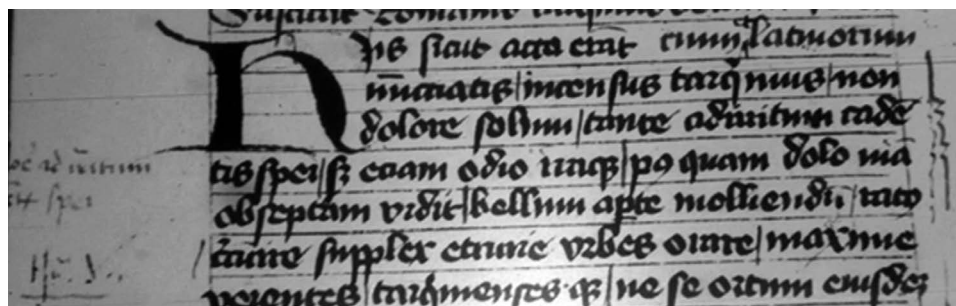 his sicut acta erāt cum latinorum
nūciatis incensus tarq̄nius non
dolore solum tante adirritum cadē
tis spei sꝫ eciam odio iraqꝫ pꝰquam dolo uia
obseptam vidit bellum apte molliendū rato
cūire supplex etrurie vrbes orare maxime
verentes tarq̄nienses qꝫ ne se ortum eiusdeꝫ